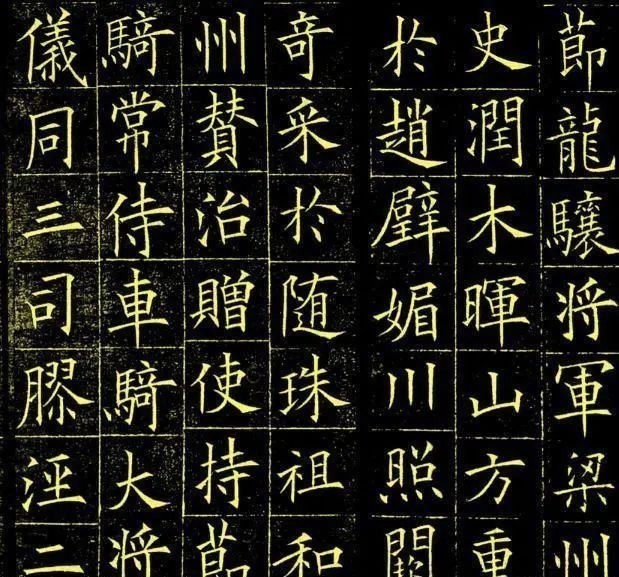 節龍驤将軍梁州
史潤木暉山方重
於趙璧媚川照
奇采於随珠祖和
州賛治贈使持節
騎常侍車騎大将
儀同三司膠涇二